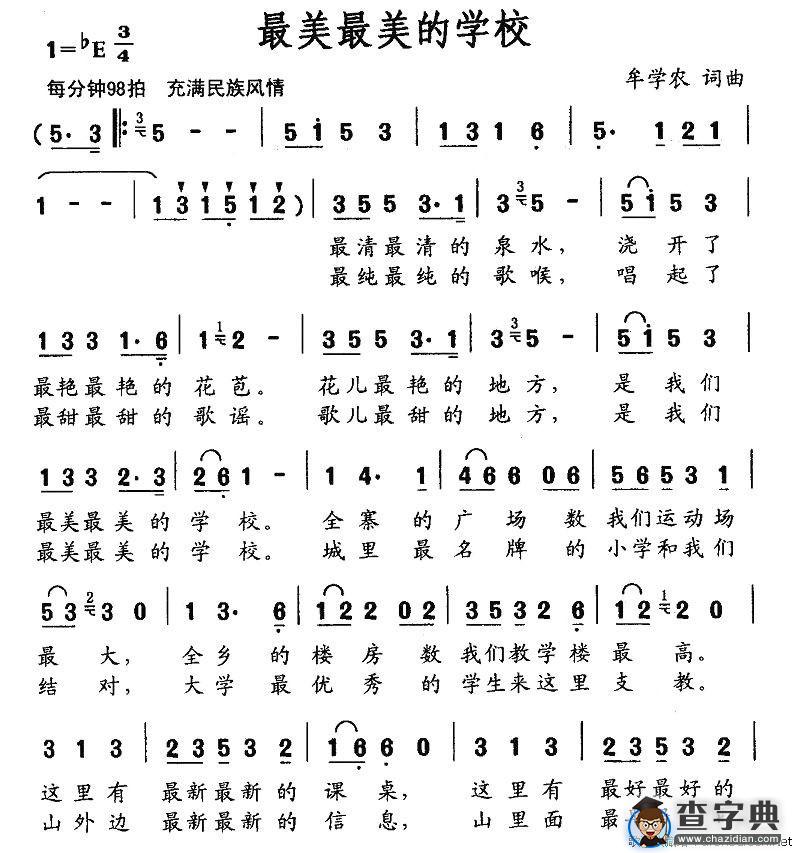 最美最美的学校
1=♭E 3/4
每分钟98拍 充满民族风情
牟学农 词曲
( 5· 3 ‖: 3 5 - - | 5 i 5 3 | 1 3 1 6 | 5· 1 2 1 |
1 - - | 1 3 1 5 1 2 ) | 3 5 5 3· 1 | 3 3 5 - | 5 i 5 3
最清最清的泉水， 浇开了
最纯最纯的歌喉， 唱起了
1 3 3 1· 6 | 1 1 2 - | 3 5 5 3· 1 | 3 3 5 - | 5 i 5 3
最艳最艳的花苞。 花儿最艳的地方， 是我们
最甜最甜的歌谣。 歌儿最甜的地方， 是我们
1 3 3 2· 3 | 2 6 1 - | 1 4· 1 | 4 6 6 0 6 | 5 6 5 3 1
最美最美的学校。 全寨的广场数我们运动场
最美最美的学校。 城里最名牌的小学和我们
5 3 2 3 0 | 1 3· 6 | 1 2 2 0 2 | 3 5 3 2 6 | 1 2 2 0
最大， 全乡的楼房数我们教学楼最高。
结对， 大学最优秀的学生来这里支教。
3 1 3 | 2 3 5 3 2 | 1 6 6 0 | 3 1 3 | 2 3 5 3 2
这里有 最新最新的课桌， 这里有 最好最好的
山外边 最新最新的信息， 山里面 最
查字典
www.chazidian.com